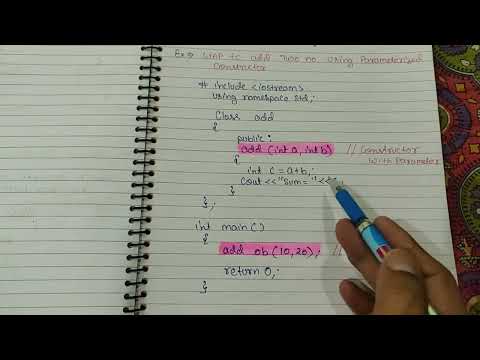 Ex⇒ WAP to add two no. using Parameterized
Constructor
# include <iostream>
using namespace std;
Class add
{
public:
add (int a, int b) // Constructor
{ With Parameter
int c = a+b;
cout << "Sum= " <<
}
};
int main()
{
add ob (10,20); //
return 0;
}